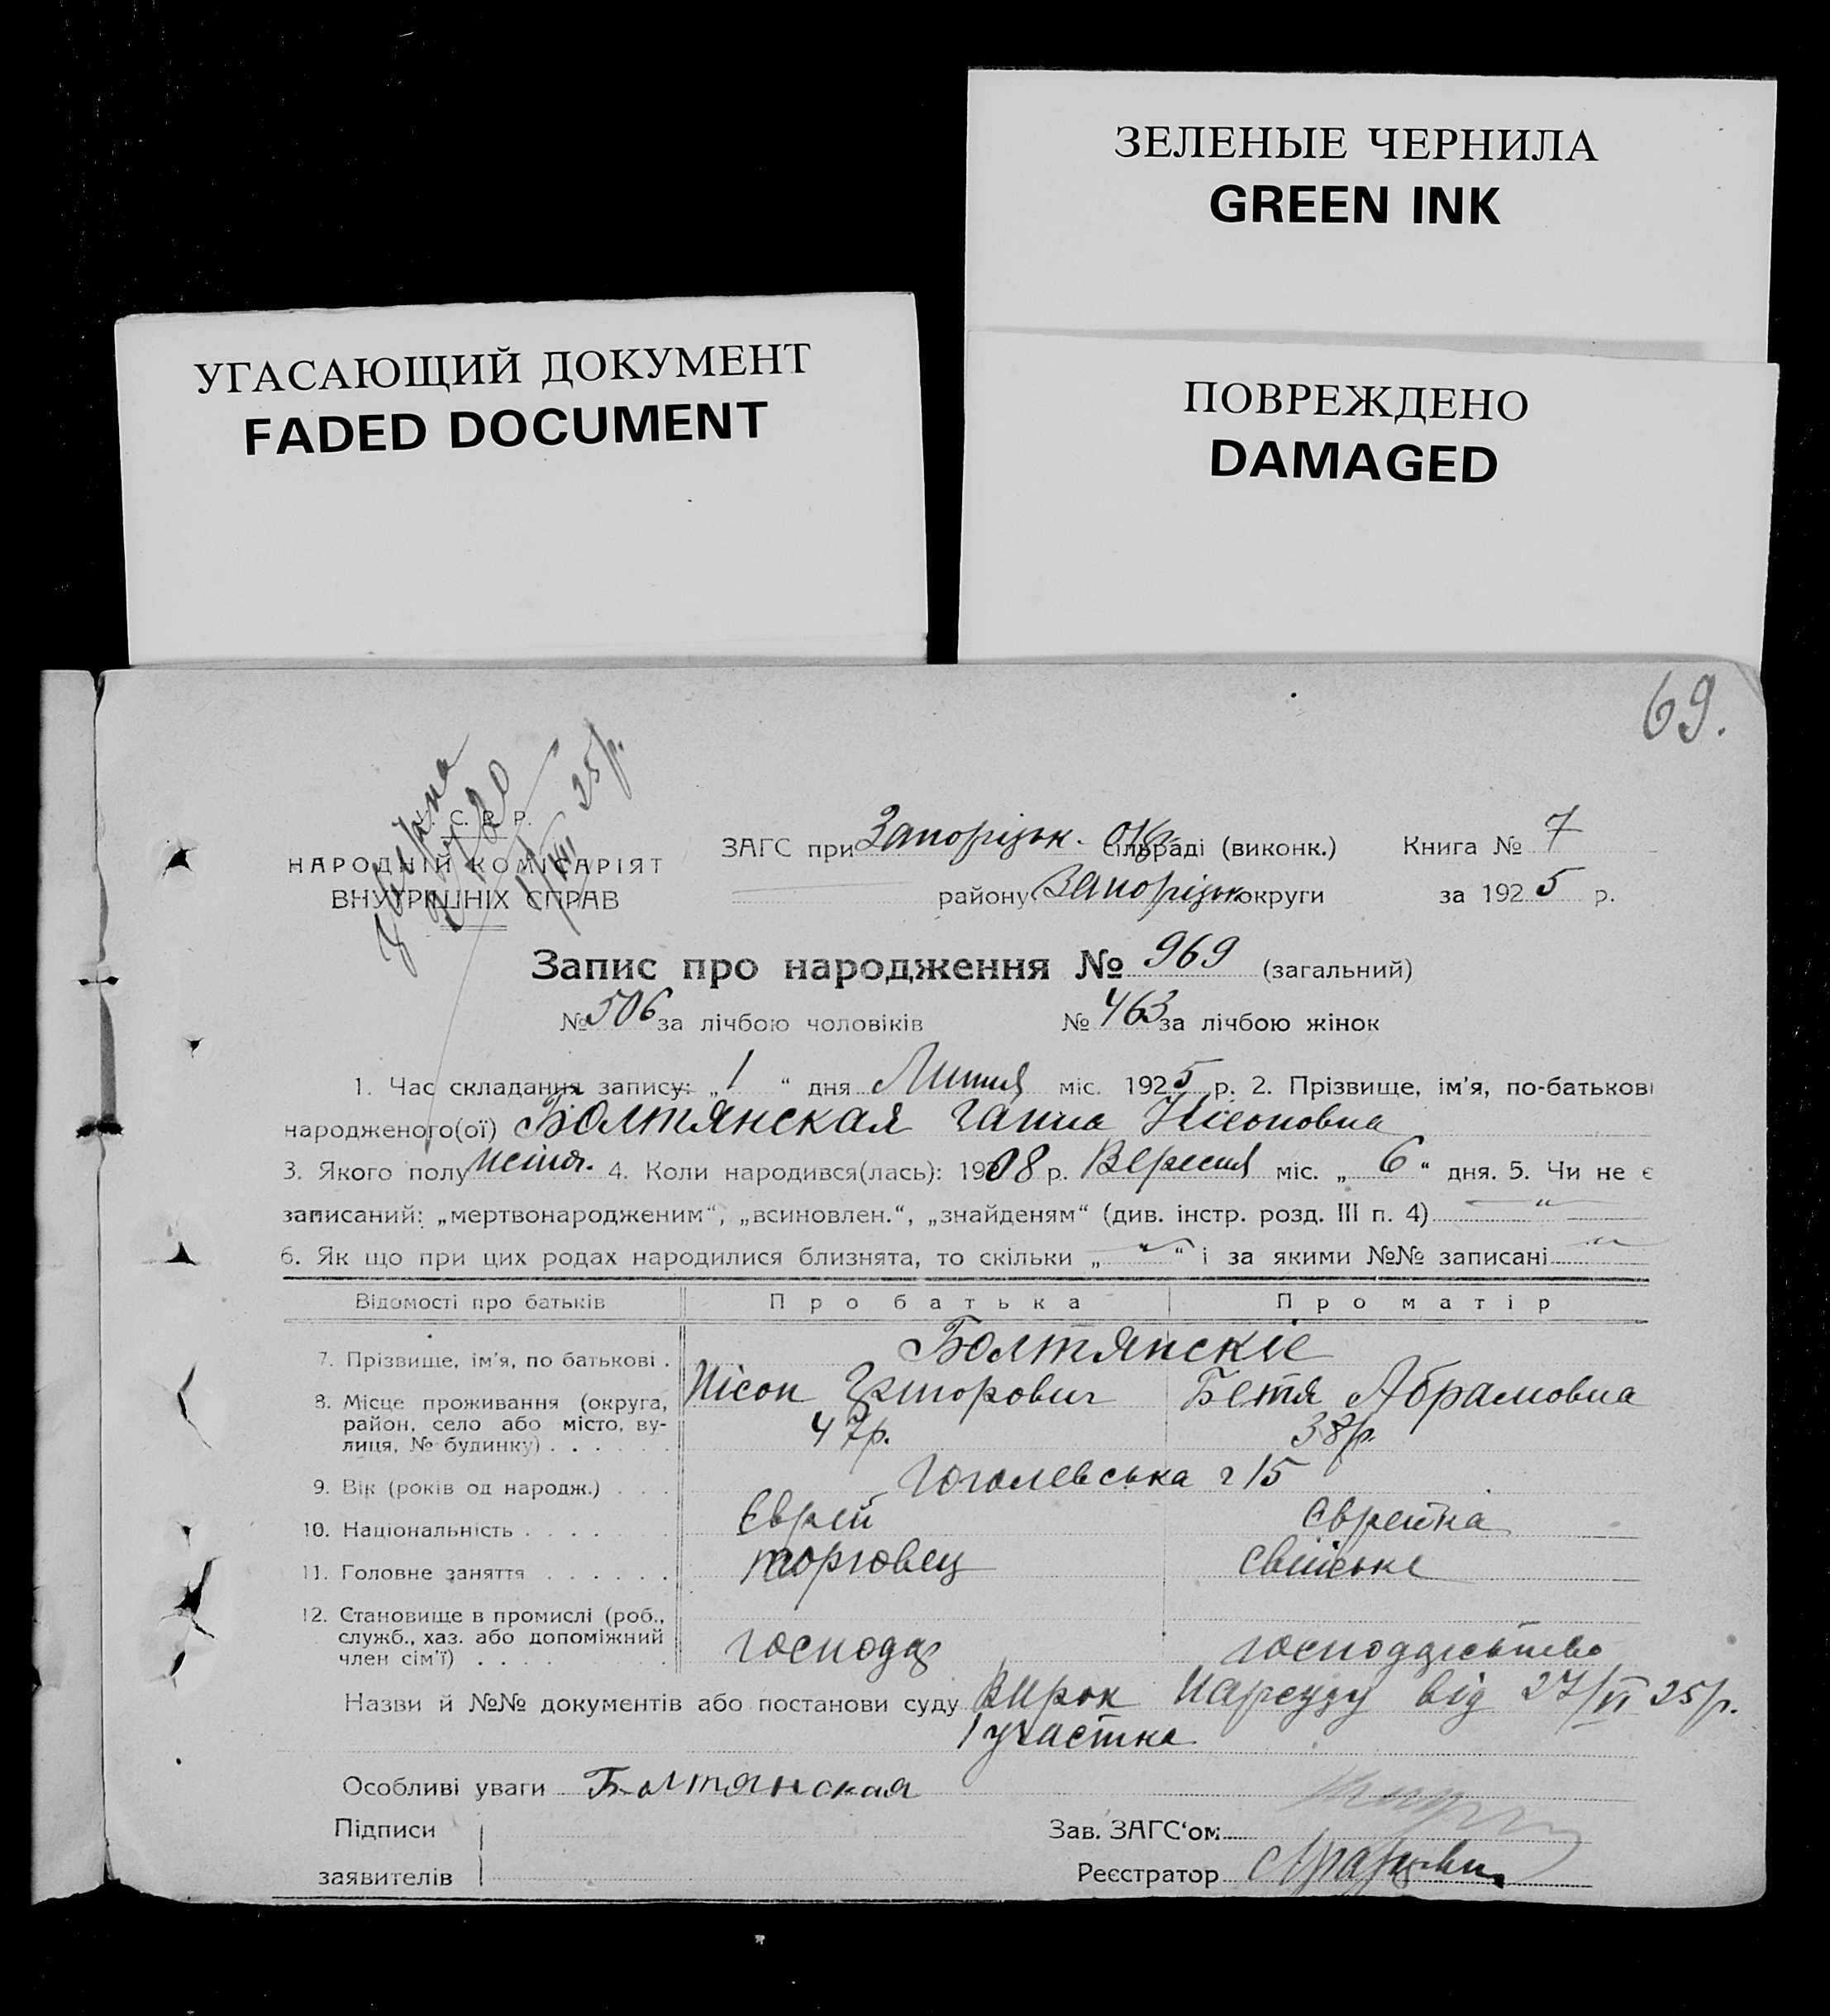 ЗЕЛЕНЫЕ ЧЕРНИЛА
GREEN INK
УГАСАЮЩИЙ ДОКУМЕНТ
FADED DOCUMENT
ПОВРЕЖДЕНО
DAMAGED
69.
У. С. Р. Р.
НАРОДНІЙ КОМІСАРІЯТ
ВНУТРІШНІХ СПРАВ
25р.
ЗАГС при Запорізьк. окр. сільраді (виконк.) Книга № 7
району Запорізьк округи за 1925 р.
Запис про народження № 969 (загальний)
№ 506 за лічбою чоловіків № 463 за лічбою жінок
1. Час складання запису: „ 1 “ дня Липня міс. 1925 р. 2. Прізвище, ім'я, по-батькові
народженого(ої) Болтянская Ганна Нісоновна
3. Якого полу жіноч. 4. Коли народився(лась): 1908 р. Вересня міс. „ 6 “ дня. 5. Чи не є
записаний: „мертвонародженим“, „всиновлен.“, „знайденям“ (див. інстр. розд. III п. 4) "
6. Як що при цих родах народилися близнята, то скільки „ " “ і за якими №№ записані "
Відомості про батьків Про батька Про матір
7. Прізвище, ім'я, по батькові . Болтянскіе
8. Місце проживання (округа, Нісон Григорович Бетя Абрамовна
район, село або місто, ву-
лиця, № будинку) . . . . . . 47р. 38р.
9. Вік (років од народж.) . . . Гоголевська 15
10. Національність . . . . . Єврей Єврейка
11. Головне заняття . . . . . . торговец свійське
12. Становище в промислі (роб.,
служб., хаз. або допоміжний
член сім'ї) . . . . . . . господар господарство
Назви й №№ документів або постанови суду Вирок Нарсуду від 27/VI 25р.
1 участка
Особливі уваги Болтянская
Підписи Зав. ЗАГС'ом
заявителів Реєстратор